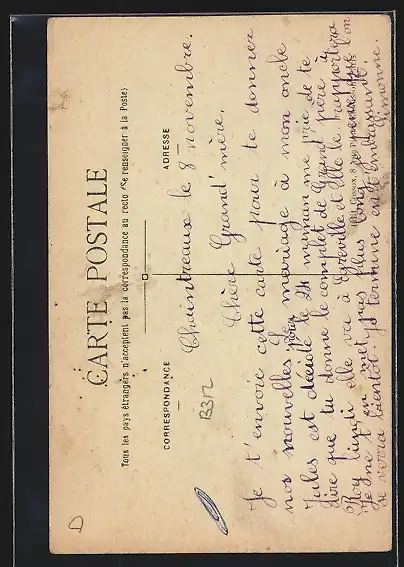 CARTE POSTALE
Tous les pays étrangers n'acceptent pas la correspondance au recto (Se renseigner à la Poste)
CORRESPONDANCE
ADRESSE
B312
D
Chaintreaux le 8 novembre.
Chère Grand'mère,
Je t'envoie cette carte pour te donner
nos nouvelles. Le mariage à mon oncle
Jules est décidé pour le 24 maman me prie de te
dire que tu donne le complet de Grand père à
Roy lundi elle va à Egreville et elle le rapportera
Je ne t'en met pas plus long vu que l'on
se verra bientôt. Je termine en t'embrassant.
Simonne.